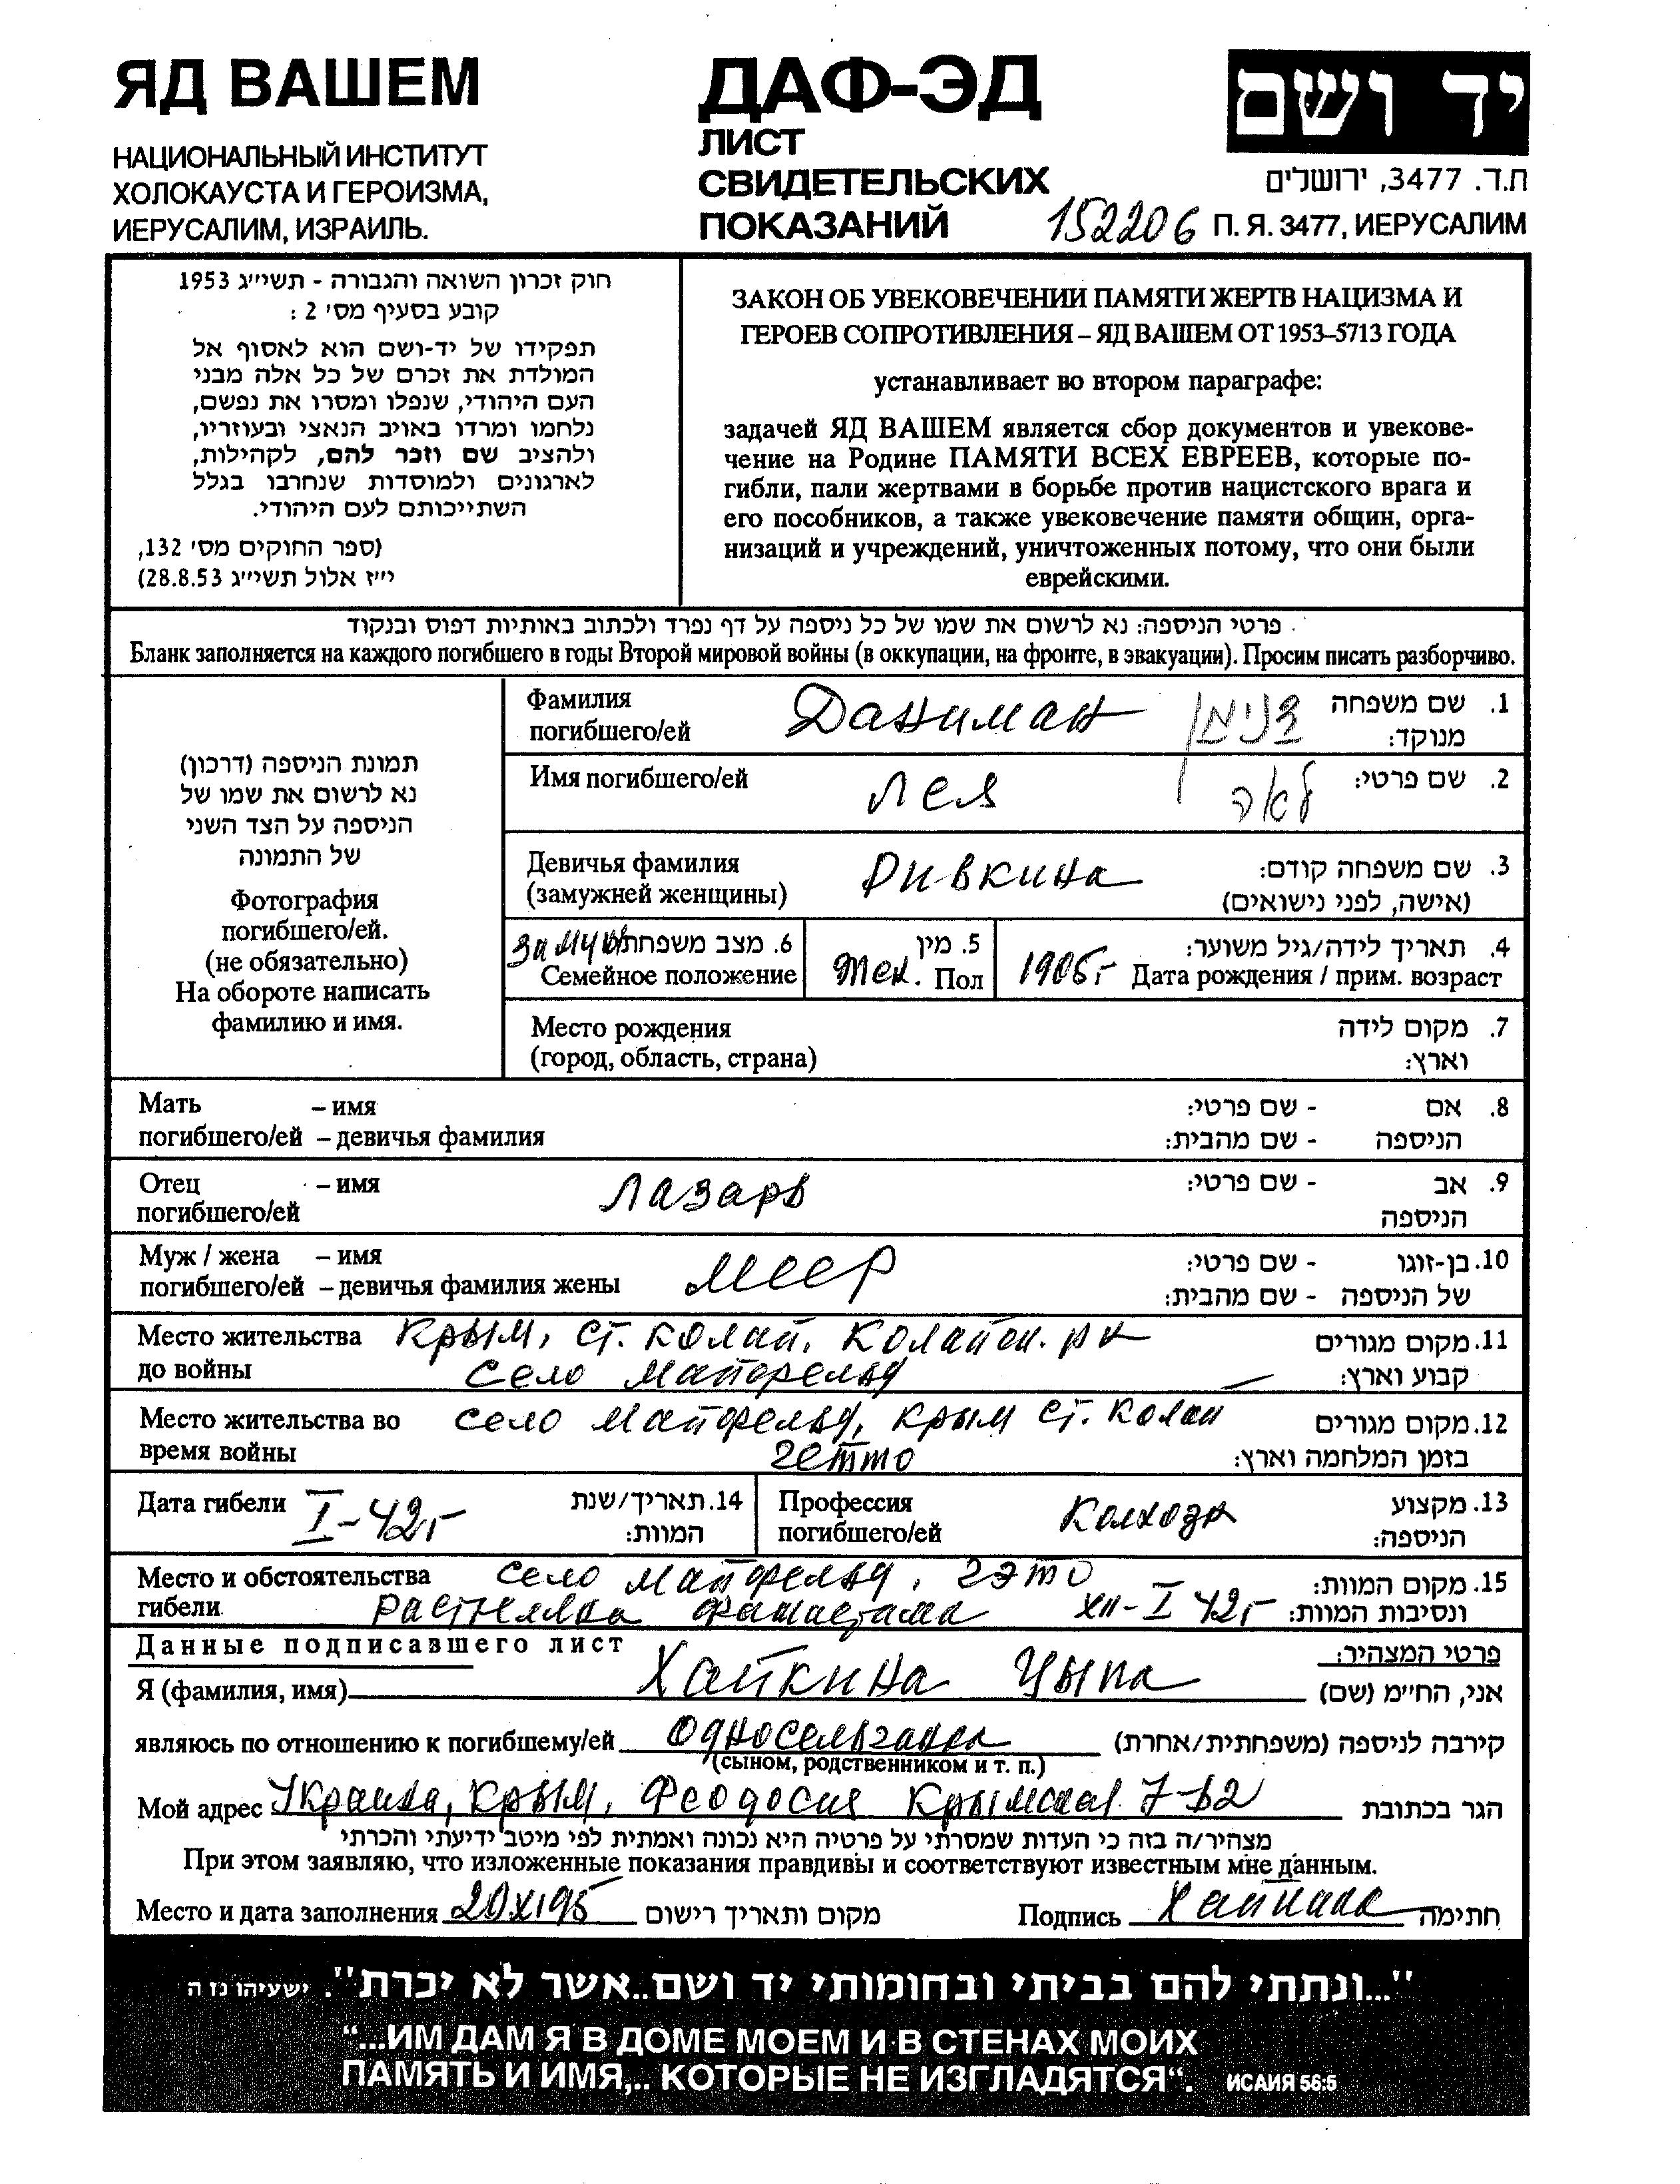 ЯД ВАШЕМ
НАЦИОНАЛЬНЫЙ ИНСТИТУТ
ХОЛОКАУСТА И ГЕРОИЗМА,
ИЕРУСАЛИМ, ИЗРАИЛЬ.
ДАФ-ЭД
ЛИСТ
СВИДЕТЕЛЬСКИХ
ПОКАЗАНИЙ
152206
יד ושם
ת.ד. 3477, ירושלים
П. Я. 3477, ИЕРУСАЛИМ
חוק זכרון השואה והגבורה - תשי״ג 1953
קובע בסעיף מס׳ 2 :
תפקידו של יד-ושם הוא לאסוף אל
המולדת את זכרם של כל אלה מבני
העם היהודי, שנפלו ומסרו את נפשם,
נלחמו ומרדו באויב הנאצי ובעוזריו,
ולהציב שם וזכר להם, לקהילות,
לארגונים ולמוסדות שנחרבו בגלל
השתייכותם לעם היהודי.
(ספר החוקים מס׳ 132,
י״ז אלול תשי״ג 28.8.53)
ЗАКОН ОБ УВЕКОВЕЧЕНИИ ПАМЯТИ ЖЕРТВ НАЦИЗМА И
ГЕРОЕВ СОПРОТИВЛЕНИЯ – ЯД ВАШЕМ ОТ 1953–5713 ГОДА
устанавливает во втором параграфе:
задачей ЯД ВАШЕМ является сбор документов и увекове-
чение на Родине ПАМЯТИ ВСЕХ ЕВРЕЕВ, которые по-
гибли, пали жертвами в борьбе против нацистского врага и
его пособников, а также увековечение памяти общин, орга-
низаций и учреждений, уничтоженных потому, что они были
еврейскими.
פרטי הניספה: נא לרשום את שמו של כל ניספה על דף נפרד ולכתוב באותיות דפוס ובנקוד
Бланк заполняется на каждого погибшего в годы Второй мировой войны (в оккупации, на фронте, в эвакуации). Просим писать разборчиво.
תמונת הניספה (דרכון)
נא לרשום את שמו של
הניספה על הצד השני
של התמונה
Фотография
погибшего/ей.
(не обязательно)
На обороте написать
фамилию и имя.
Фамилия Даниман דנימן 1. שם משפחה
погибшего/ей מנוקד:
Имя погибшего/ей Лея לאה 2. שם פרטי:
Девичья фамилия Ривкина 3. שם משפחה קודם:
(замужней женщины) (אישה, לפני נישואים)
замуж 6. מצב משפחתי 5. מין 4. תאריך לידה/גיל משוער:
Семейное положение жен. Пол 1905г Дата рождения / прим. возраст
Место рождения 7. מקום לידה
(город, область, страна) וארץ:
Мать – имя - שם פרטי: 8. אם
погибшего/ей – девичья фамилия - שם מהבית: הניספה
Отец – имя Лазарь - שם פרטי: 9. אב
погибшего/ей הניספה
Муж / жена – имя Меер - שם פרטי: 10. בן-זוגו
погибшего/ей – девичья фамилия жены - שם מהבית: של הניספה
Место жительства Крым, ст. Колай, Колайск. р-н 11. מקום מגורים
до войны село Майфельд קבוע וארץ:
Место жительства во село Майфельд, Крым ст. Колай 12. מקום מגורים
время войны гетто בזמן המלחמה וארץ:
Дата гибели I-42г 14. תאריך/שנת Профессия 13. מקצוע
המוות: погибшего/ей Колхозн הניספה:
Место и обстоятельства село Майфельд, гэто 15. מקום המוות:
гибели фашистами XII-I 42г ונסיבות המוות:
Данные подписавшего лист פרטי המצהיר:
Я (фамилия, имя) Хайкина Цыпа אני, הח״מ (שם)
являюсь по отношению к погибшему/ей односельчанка קירבה לניספה (משפחתית/אחרת)
(сыном, родственником и т. п.)
Мой адрес Украина, Крым, Феодосия Крымская 7-62 הגר בכתובת
מצהיר/ה בזה כי העדות שמסרתי על פרטיה היא נכונה ואמתית לפי מיטב ידיעתי והכרתי
При этом заявляю, что изложенные показания правдивы и соответствуют известным мне данным.
Место и дата заполнения 20XI95 מקום ותאריך רישום Подпись Хайкина חתימה
"...ונתתי להם בביתי ובחומותי יד ושם..אשר לא יכרת". ישעיהו נו ה
“...ИМ ДАМ Я В ДОМЕ МОЕМ И В СТЕНАХ МОИХ
ПАМЯТЬ И ИМЯ,.. КОТОРЫЕ НЕ ИЗГЛАДЯТСЯ“. ИСАИЯ 56:5